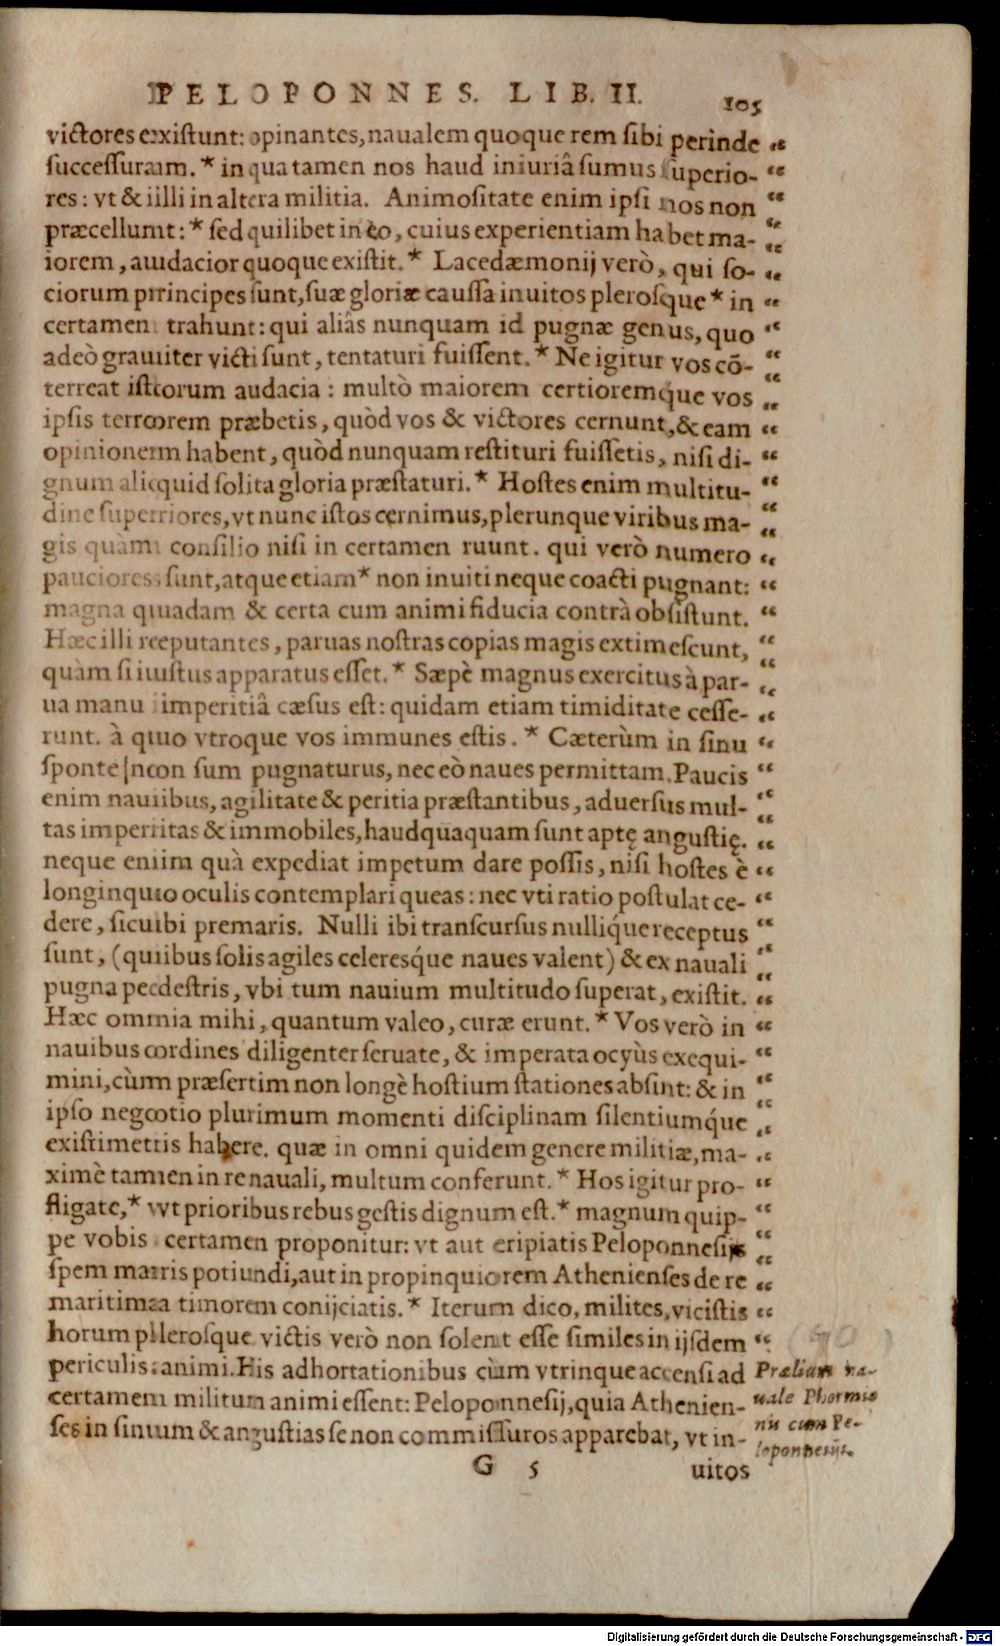 PELOPONNES. LIB. II. 105
victores existunt: opinantes, naualem quoque rem sibi perinde
successuram. * in qua tamen nos haud iniuriâ sumus superio-
res: vt & illi in altera militia. Animositate enim ipsi nos non
præcellunt: * sed quilibet in eo, cuius experientiam habet ma-
iorem, audacior quoque existit. * Lacedæmonij verò, qui so-
ciorum principes sunt, suæ gloriæ caussa inuitos plerosque * in
certamen trahunt: qui aliâs nunquam id pugnæ genus, quo
adeò grauiter victi sunt, tentaturi fuissent. * Ne igitur vos cõ-
terreat istorum audacia: multò maiorem certioremq́ue vos
ipsis terrorem præbetis, quòd vos & victores cernunt, & eam
opinionem habent, quòd nunquam restituri fuissetis, nisi di-
gnum aliquid solita gloria præstaturi. * Hostes enim multitu-
dine superiores, vt nunc istos cernimus, plerunque viribus ma-
gis quàm consilio nisi in certamen ruunt. qui verò numero
pauciores sunt, atque etiam * non inuiti neque coacti pugnant:
magna quadam & certa cum animi fiducia contrà obsistunt.
Hæc illi reputantes, paruas nostras copias magis extimescunt,
quàm si iustus apparatus esset. * Sæpè magnus exercitus à par-
ua manu imperitiâ cæsus est: quidam etiam timiditate cesse-
runt. à quo vtroque vos immunes estis. * Cæterùm in sinu
sponte non sum pugnaturus, nec eò naues permittam. Paucis
enim nauibus, agilitate & peritia præstantibus, aduersus mul-
tas imperitas & immobiles, haudquaquam sunt aptę angustię.
neque enim quà expediat impetum dare possis, nisi hostes è
longinquo oculis contemplari queas: nec vti ratio postulat ce-
dere, sicubi premaris. Nulli ibi transcursus nulliq́ue receptus
sunt, (quibus solis agiles celeresq́ue naues valent) & ex nauali
pugna pedestris, vbi tum nauium multitudo superat, existit.
Hæc omnia mihi, quantum valeo, curæ erunt. * Vos verò in
nauibus ordines diligenter seruate, & imperata ocyùs exequi-
mini, cùm præsertim non longè hostium stationes absint: & in
ipso negotio plurimum momenti disciplinam silentiumq́ue
existimetis habere. quæ in omni quidem genere militiæ, ma-
ximè tamen in re nauali, multum conferunt. * Hos igitur pro-
fligate, * vt prioribus rebus gestis dignum est. * magnum quip-
pe vobis certamen proponitur: vt aut eripiatis Peloponnesijs
spem maris potiundi, aut in propinquiorem Athenienses de re
maritima timorem conijciatis. * Iterum dico, milites, vicistis
horum plerosque. victis verò non solent esse similes in ijsdem
periculis animi. His adhortationibus cùm vtrinque accensi ad
certamem militum animi essent: Peloponnesij, quia Athenien-
ses in sinum & angustias se non commissuros apparebat, vt in-
Prælium na-
uale Phormio
nis cum Pe-
loponnesijs.
G 5 uitos
(90)
Digitalisierung gefördert durch die Deutsche Forschungsgemeinschaft - DFG